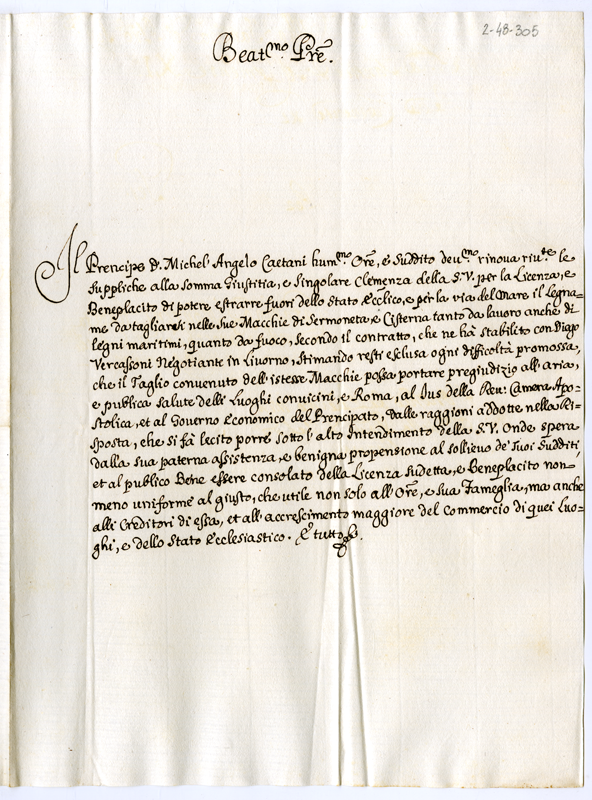 2-48-305
Beat.mo Prē.
Il Prencipe D. Michel' Angelo Caetani hum.mo Ore, e Suddito deu.mo rinova riu.te le
suppliche alla somma Giustitia, e singolare Clemenza della S.V. per la Licenza, e
Beneplacito di potere estrarre fuori dello Stato Ecclico, e per la via del Mare il Legna=
me da tagliarsi nelle sue Macchie di Sermoneta, e Cisterna tanto da lavoro anche di
legni maritimi, quanto da fuoco, secondo il contratto, che ne hà stabilito con Diego
Vercassoni Negotiante in Livorno, stimando resti esclusa ogni difficoltà promossa,
che il Taglio convenuto dell'istesse Macchie possa portare pregiudizio all'aria,
e publica salute delli Luoghi convicini, e Roma, al Ius della Reu: Camera Apo=
stolica, et al Governo Economico del Prencipato, dalle raggioni addotte nella Ri=
sposta, che si fà lecito porre sotto l'alto Intendimento della S.V. Onde spera
dalla sua paterna assistenza, e benigna propensione al sollievo de' suoi Sudditi,
et al publico Bene essere consolato della Licenza sudetta, e Beneplacito non
meno uniforme al giusto, che utile non solo all'Ore, e sua Fameglia, ma anche
alli Creditori di essa, et all'accrescimento maggiore del Commercio di quei Luo=
ghi, e dello Stato Ecclesiastico. E tutto